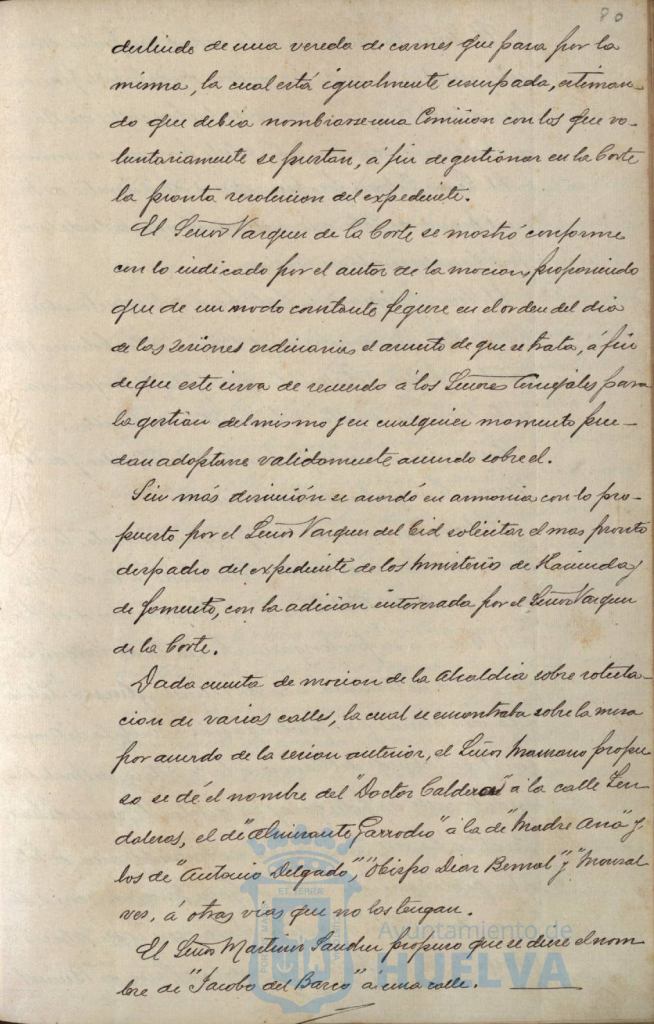 80
deslinde de una vereda de carnes que pasa por la
misma, la cual está igualmente usurpada, estiman-
do que debia nombrarse una Comision con los que vo-
luntariamente se prestan, á fin de gestionar en la Corte
la pronta resolucion del expediente.
El Señor Vazquez de la Corte se mostró conforme
con lo indicado por el autor de la mocion, proponiendo
que de un modo constante figure en el orden del dia
de las sesiones ordinarias el asunto de que se trata, á fin
de que este sirva de recuerdo á los Señores Concejales para
la gestion del mismo y en cualquier momento pue-
dan adoptarse validamente acuerdo sobre el.
Sin más discusión se acordó en armonia con lo pro-
puesto por el Señor Vazquez del Cid solicitar el mas pronto
despacho del expediente de los Ministerios de Hacienda y
de Fomento, con la adicion interesada por el Señor Vazquez
de la Corte.
Dada cuenta de mocion de la Alcaldia sobre rotula-
cion de varias calles, la cual se encontraba sobre la mesa
por acuerdo de la sesion anterior, el Señor propu-
so se dé el nombre del "Doctor Caldera" á la calle Sen-
daleras, el de "Almirante Garrocho" á la de "Madre Ana" y
los de "Antonio Delgado", "Obispo Diaz Bernal" y "Monsal-
ves, á otras vias que no los tengan.
El Señor Martinez Sanchez propuso que se diese el nom-
bre de "Jacobo del Barco" á una calle.
Ayuntamiento de
HUELVA